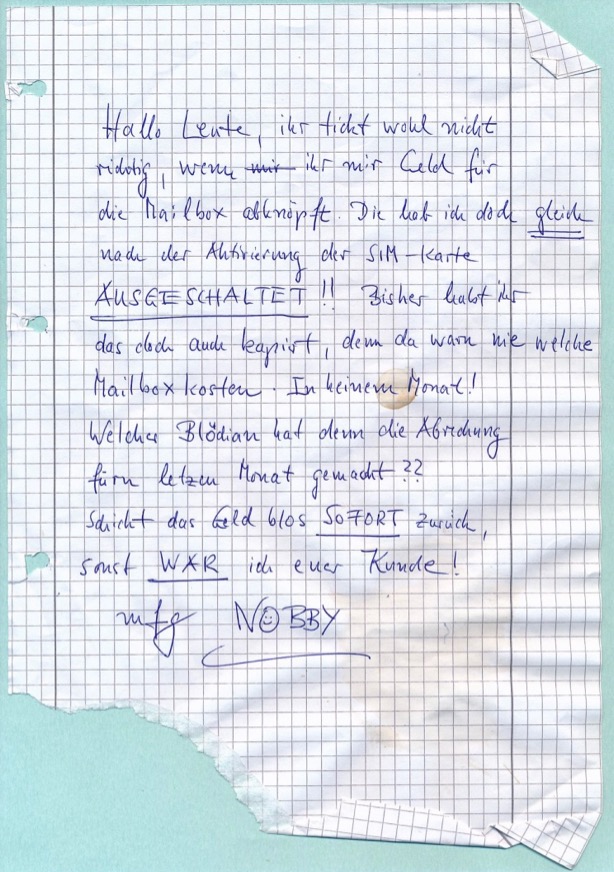 Hallo Leute, ihr tickt wohl nicht
richtig, wenn mir ihr mir Geld für
die Mailbox abknöpft. Die hab ich doch gleich
nach der Aktivierung der SIM-Karte
AUSGESCHALTET!! Bisher habt ihr
das doch auch kapirt, denn da warn nie welche
Mailboxkosten. In keinem Monat!
Welcher Blödian hat denn die Abrechung
fürn letzen Monat gemacht??
Schickt das Geld blos SOFORT zurück,
sonst WAR ich euer Kunde!
mfg NOBBY